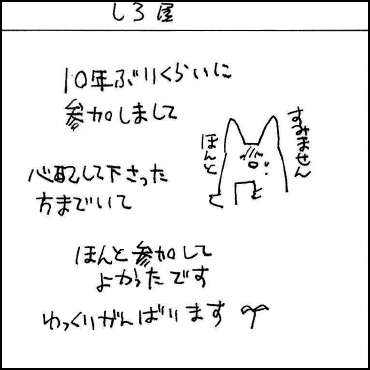 しろ屋
10年ぶりくらいに
参加しまして
すみません
ほんと
心配して下さった
方までいて
ほんと参加して
よかったです
ゆっくりがんばります